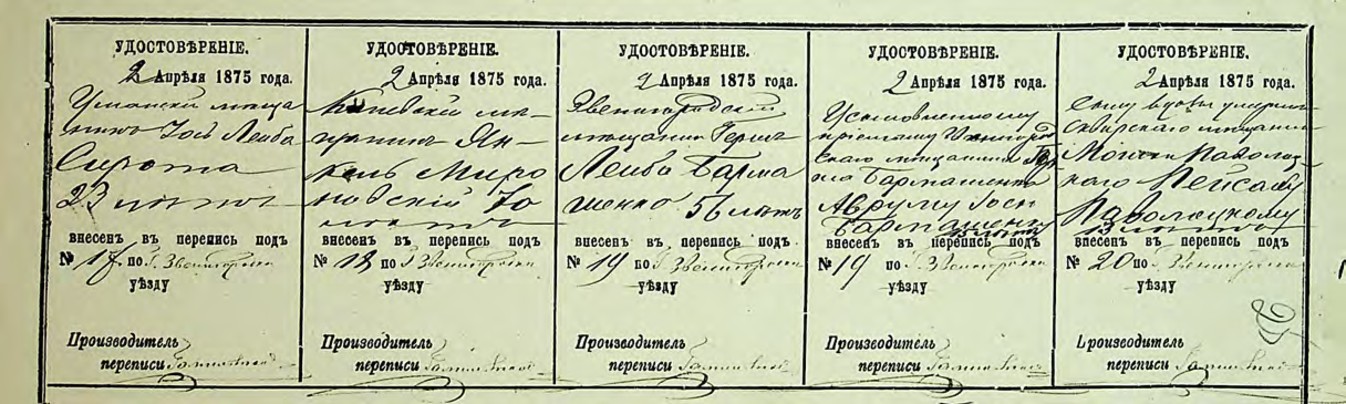 УДОСТОВѢРЕНІЕ.
2 Апрѣля 1875 года.
Уманскій мѣща
нинъ Іось Лейба
Сирота
23 лѣтъ
внесенъ въ перепись подъ
№ по Г. Звенигородкѣ
уѣзду
Производитель
переписи
УДОСТОВѢРЕНІЕ.
2 Апрѣля 1875 года.
Каневскій мѣ-
щанинъ Ян-
кель Миро
новскій 70
лѣтъ
внесенъ въ перепись подъ
№ 18 по Г. Звенигородкѣ
уѣзду
Производитель
переписи
УДОСТОВѢРЕНІЕ.
2 Апрѣля 1875 года.
Звенигородскій
мѣщанинъ Герш
Лейба Барма
шенко 56 лѣтъ
внесенъ въ перепись подъ
№ 19 по Г. Звенигородкѣ
уѣзду
Производитель
переписи
УДОСТОВѢРЕНІЕ.
2 Апрѣля 1875 года.
Усыновленному
пріемышу Звенигород
скаго мѣщанина Гер
Бармашенка
Аврумъ Іосъ
Бармашенко
лѣтъ
внесенъ въ перепись подъ
№ 19 по Г. Звенигородкѣ
уѣзду
Производитель
переписи
УДОСТОВѢРЕНІЕ.
2 Апрѣля 1875 года.
Сыну вдовы умерш
Сквирскаго мѣщани
Мошки Паволоц
каго Пейсаху
Паволоцкому
13 лѣтъ
внесенъ въ перепись подъ
№ 20 по Г. Звенигородкѣ
уѣзду
Производитель
переписи